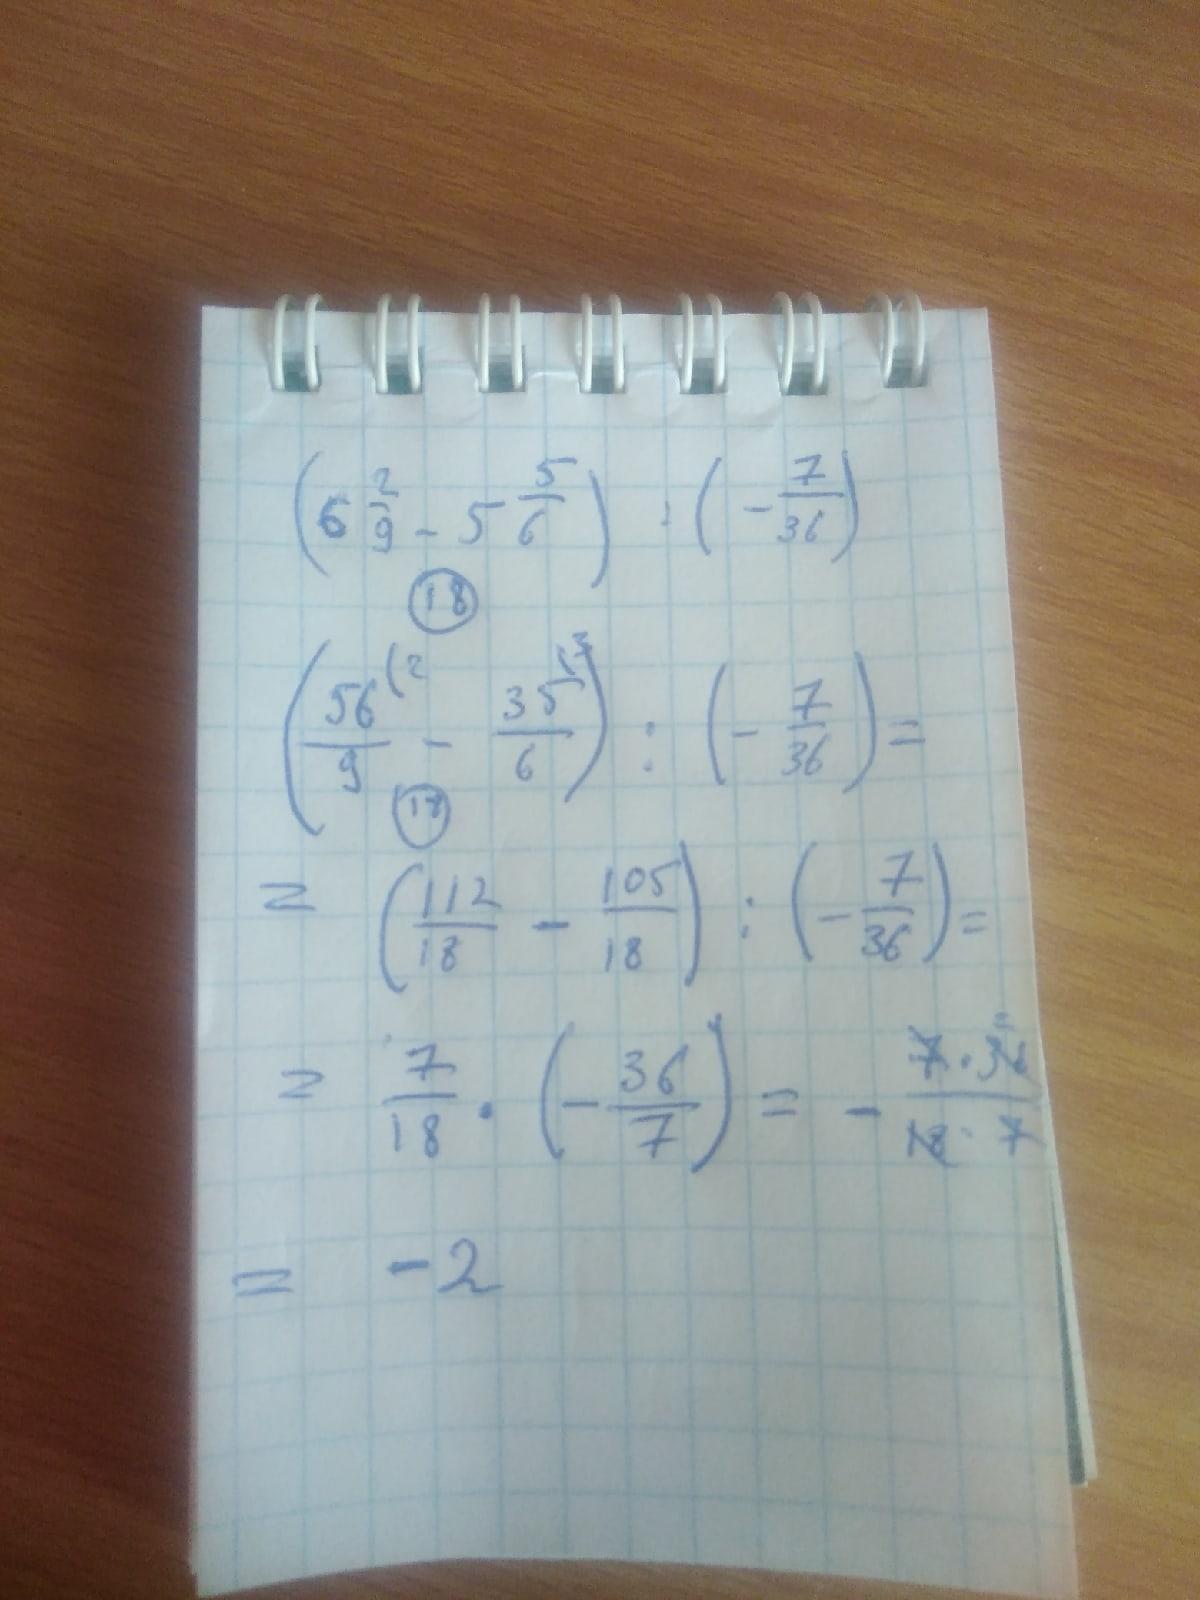 (6 2/9 - 5 5/6) : (- 7/36)
18
(56/9 (2 - 35/6 (3) : (- 7/36) =
18
= (112/18 - 105/18) : (- 7/36) =
= 7/18 · (- 36/7) = - 7·36/18·7
= -2